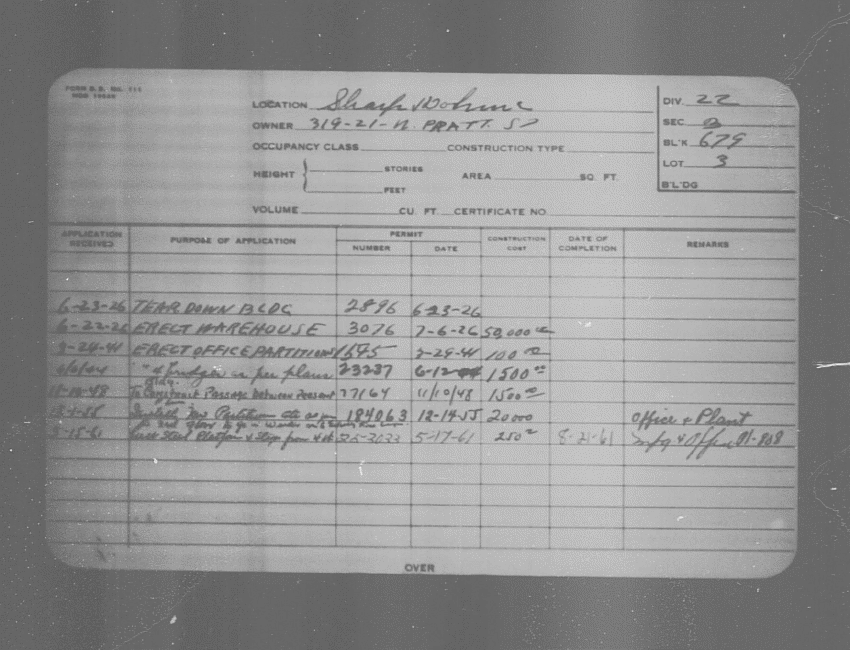 FORM B. B. No. 111
LOCATION Sharp & Dohme
OWNER 319-21-N. PRATT ST
OCCUPANCY CLASS CONSTRUCTION TYPE
HEIGHT STORIES FEET AREA SQ. FT.
VOLUME CU. FT. CERTIFICATE NO.
DIV. 22
SEC. 2
BL'K 679
LOT 3
B'L'DG
APPLICATION RECEIVED PURPOSE OF APPLICATION PERMIT NUMBER DATE CONSTRUCTION COST DATE OF COMPLETION REMARKS
6-23-26 TEAR DOWN BLDG 2896 6-23-26
6-22-26 ERECT WAREHOUSE 3076 7-6-26 50,000
3-24-41 ERECT OFFICE PARTITIONS 1645 3-29-41 100 00
" & per plans 23237 6-12-44 1500 00
Bldg.
11-10-48 To Construct Passage between present 77164 11/10/48 1500 00
Install New Partition etc as per 184063 12-14 55 20000 Office & Plant
5-15-61 Erect Steel Platform & Steps from 5-17-61 250 00 8-21-61 Mfg & Office
OVER